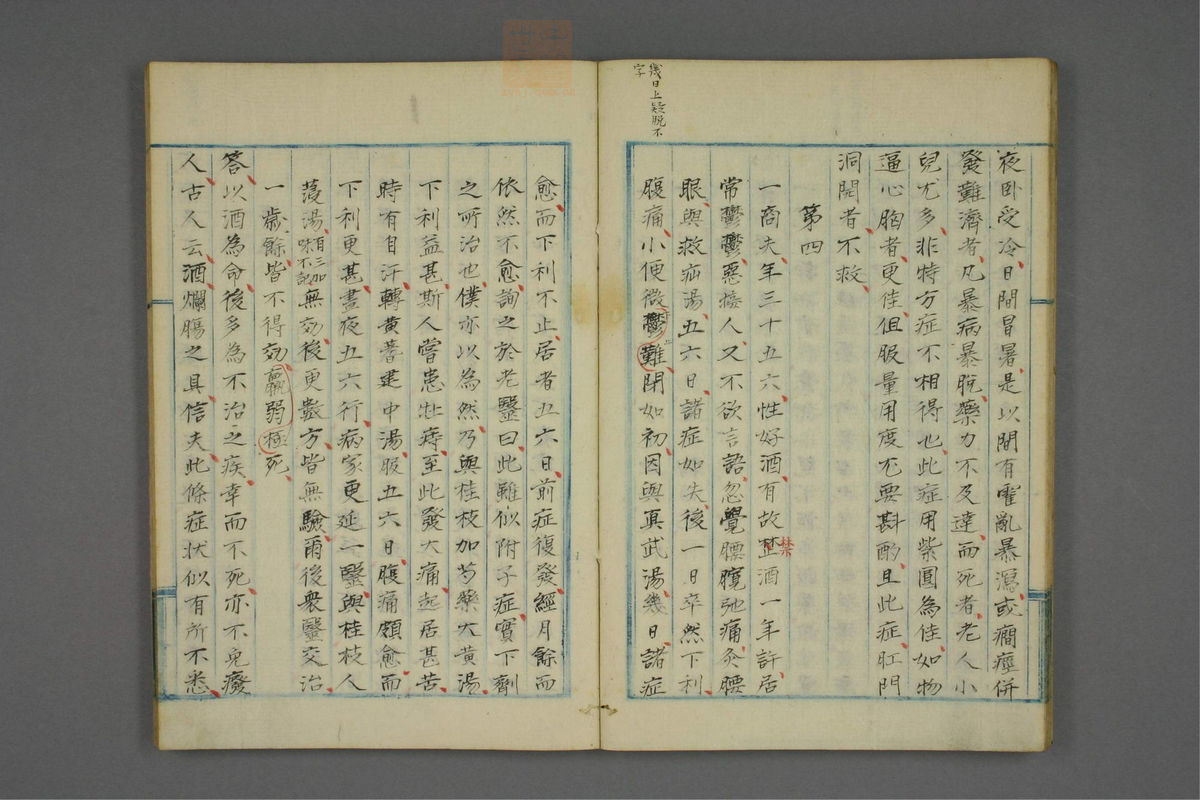 幾日上疑脱不
字
夜卧受冷日間冒暑是以間有霍亂暴瀉或癇痙併
發難濟者凡暴病暴脱藥力不及達而死者老人小
兒尤多非特方症不相得也此症用紫圓為佳如物
逼心胸者更佳但服量用度尤要斟酌且此症肛門
洞開者不救
第四
一商夫年三十五六性好酒有故禁酒一年許居
常鬱鬱惡接人又不欲言語忽覺腰髖弛痛灸腰
眼與救疝湯五六日諸症如失後一日卒然下利
腹痛小便微鬱難閉如初因與真武湯幾日諸症
愈而下利不止居者五六日前症復發經月餘而
依然不愈詢之於老醫曰此雖似附子症實下劑
之所治也僕亦以為然乃與桂枝加芍藥大黄湯
下利益甚斯人嘗患壮痔至此發大痛起居甚苦
時有自汗轉黄蓍建中湯服五六日腹痛頗愈而
下利更甚晝夜五六行病家更延一醫與桂枝人
葠湯自三加味不記無効後更數方皆無驗爾後衆醫交治
一歳餘皆不得効羸弱極死
答以酒為命後多為不治之疾幸而不死亦不免癈
人古人云酒爛腸之具信夫此條症状似有所不悉